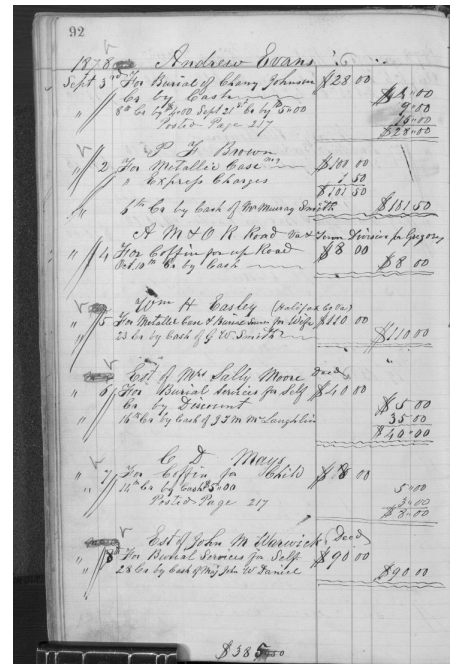 92
1878 Andrew Evans
Sept 3rd For Burial of Chany Johnson $28 00
Cr by Cash $4"00
8th Cr by $9"00 Sept 21st Cr by $5"00 9"00
" Posted Page 217 15"00
$28"00
P. F. Brown
" 2 For Metallic Case $100 00
" Express Charges 1 50
$101 50
" 5th Cr by Cash of Mr Murray Smith $101 50
A M & O R Road Va & Tenn Division for Gregory
" 4 For Coffin for up Road $8 00
Oct 10th Cr by Cash $8 00
Wm H Easley (Halifax Co Va)
" 5 For Metallic Case & Burial for Wife $110 00
23 Cr by Cash of G W Smith $110"00
Est of Mrs Sally Moore Decd
" 6 For Burial Services for Self $40 00
" Cr by Discount $5 00
16th Cr by Cash of J T M McLaughlin 35 00
$40"00
C D Mays
" 7 For Coffin for Child $8 00
" 14th Cr by Cash $5"00 5"00
Posted Page 217 3"00
$8"00
Est of John M Warwick Decd
" 8 For Burial Services for Self $90 00
" 28 Cr by Cash of Maj John W Daniel $90 00
$385 50